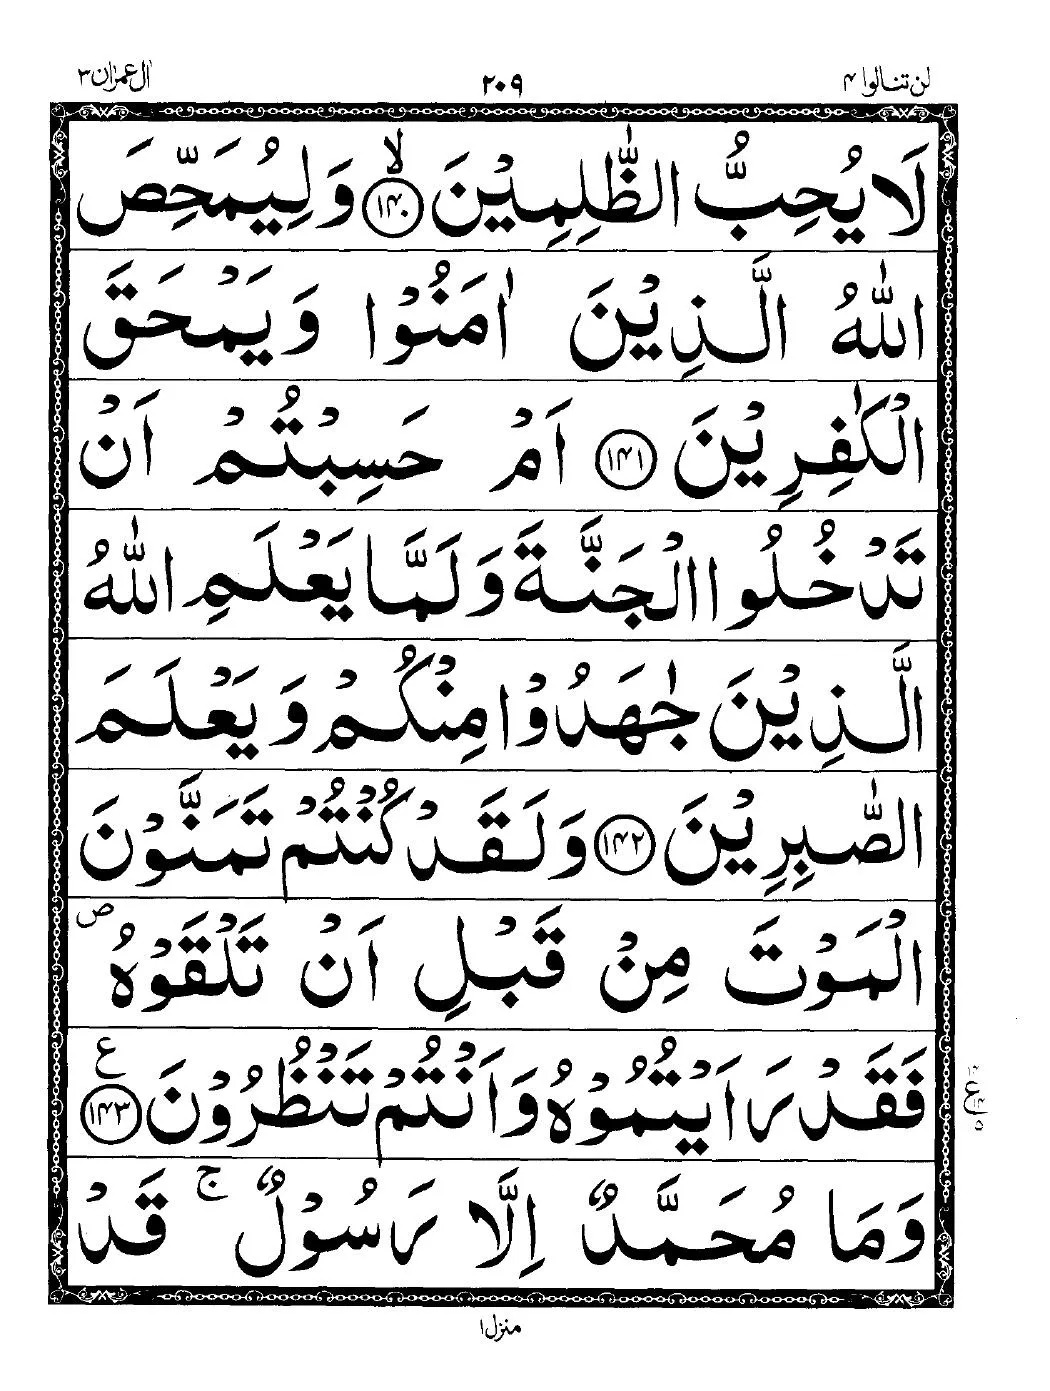 لن تنالوا ۴ ۲۰۹ اٰل عمرٰن ۳
لَا يُحِبُّ الظّٰلِمِيْنَ ۙ﴿۱۴۰﴾ وَلِيُمَحِّصَ
اللّٰهُ الَّذِيْنَ اٰمَنُوْا وَيَمْحَقَ
الْكٰفِرِيْنَ ﴿۱۴۱﴾ اَمْ حَسِبْتُمْ اَنْ
تَدْخُلُوا الْجَنَّةَ وَلَمَّا يَعْلَمِ اللّٰهُ
الَّذِيْنَ جٰهَدُوْا مِنْكُمْ وَيَعْلَمَ
الصّٰبِرِيْنَ ﴿۱۴۲﴾ وَلَقَدْ كُنْتُمْ تَمَنَّوْنَ
الْمَوْتَ مِنْ قَبْلِ اَنْ تَلْقَوْهُ ص
فَقَدْ رَاَيْتُمُوْهُ وَاَنْتُمْ تَنْظُرُوْنَ ع ﴿۱۴۳﴾
ع ۱۴ ۵
وَمَا مُحَمَّدٌ اِلَّا رَسُوْلٌ ۚ قَدْ
منزل ۱